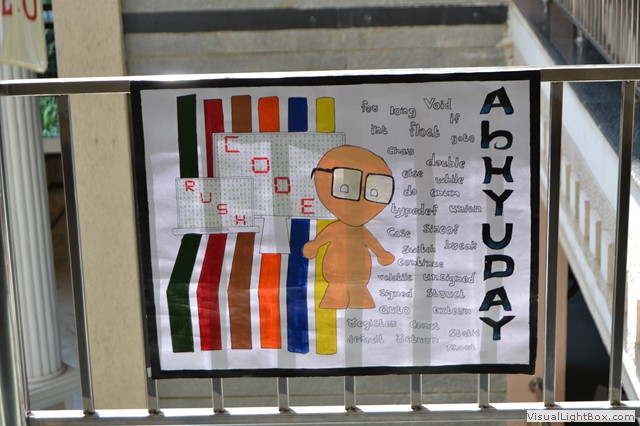 ABHYUDAY
CODE
RUSH
for long Void if
int float goto
Class double
else while
do enum
typedef union
Case Sizeof
Switch break
Continue
volatile unsigned
Signed Struct
auto extern
Register Const
default Return Static
Short
VisualLightBox.com